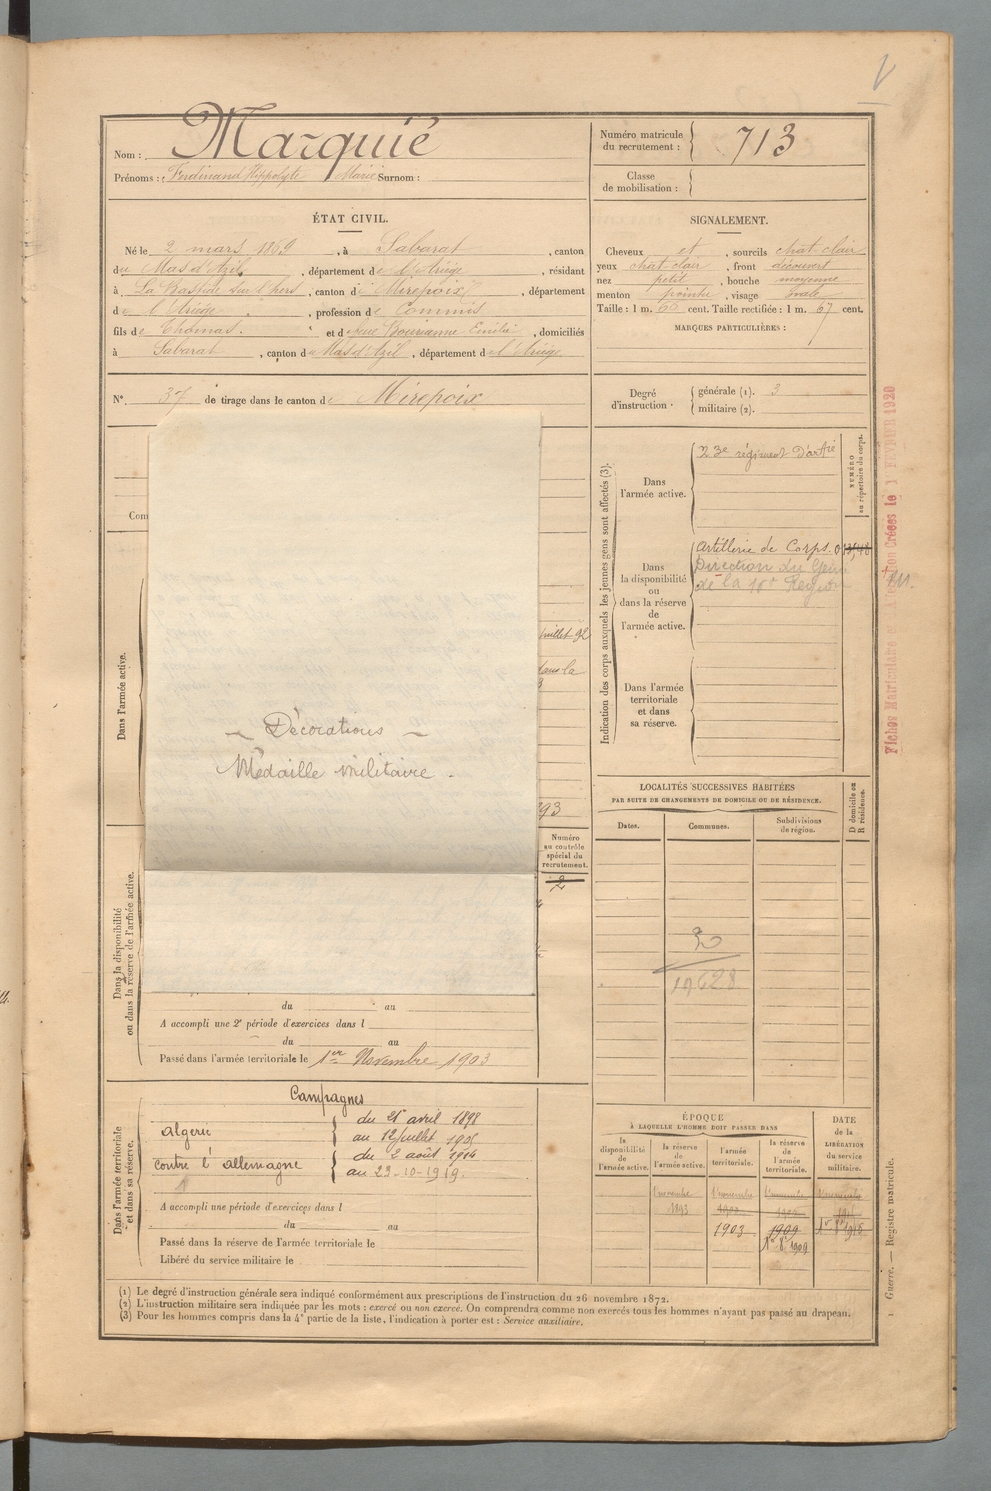 V
Marquié
Nom :
Prénoms : Ferdinand Hippolyte Marie Surnom :
Numéro matricule du recrutement : 713
Classe de mobilisation :
ÉTAT CIVIL.
Né le 2 mars 1869, à Sabarat, canton
du Mas d'Azil, département de l'Ariège, résidant
à La Bastide sur l'hers, canton de Mirepoix, département
de l'Ariège, profession de Commis
fils de Thomas. et de Emilie, domiciliés
à Sabarat, canton du Mas d'Azil, département de l'Ariège
N° 37 de tirage dans le canton de Mirepoix
SIGNALEMENT.
Cheveux et, sourcils chat-clair
yeux chat-clair, front découvert
nez petit, bouche moyenne
menton pointu, visage ovale
Taille : 1 m. cent. Taille rectifiée : 1 m. 67 cent.
MARQUES PARTICULIÈRES :
Degré d'instruction. générale (1). 3
militaire (2).
Com
Dans l'armée active.
juillet 92
dans la
3
93
Décorations
Médaille militaire
Indication des corps auxquels les jeunes gens sont affectés (3).
Dans l'armée active.
23e régiment d'artie
NUMÉRO au répertoire du corps.
Dans la disponibilité ou dans la réserve de l'armée active.
Artillerie de Corps.
Direction du Génie
de la 16e Région
Dans l'armée territoriale et dans sa réserve.
Fiches Matriculaire et d'Aération Créées le 1r FEVRIER 1920
LOCALITÉS SUCCESSIVES HABITÉES
PAR SUITE DE CHANGEMENTS DE DOMICILE OU DE RÉSIDENCE.
Dates.
Communes.
Subdivisions de région.
D domicile ou R résidence.
19628
Numéro au contrôle spécial du recrutement.
2
Dans la disponibilité ou dans la réserve de l'armée active.
du au
A accompli une 2e période d'exercices dans l
du au
Passé dans l'armée territoriale le 1er Novembre 1903
Dans l'armée territoriale et dans sa réserve.
Campagnes
algérie du 21 avril 1898
au 12 juillet 1905
contre l'allemagne du 2 août 1914
au 23-10-1919.
A accompli une période d'exercices dans l
du au
Passé dans la réserve de l'armée territoriale le
Libéré du service militaire le
ÉPOQUE
À LAQUELLE L'HOMME DOIT PASSER DANS
la disponibilité de l'armée active.
la réserve de l'armée active.
l'armée territoriale.
la réserve de l'armée territoriale.
DATE de la LIBÉRATION du service militaire.
1 novembre 1893
1 novembre
1903
1909
1er 8bre 1909
1915
Guerre. — Registre matricule.
(1) Le degré d'instruction générale sera indiqué conformément aux prescriptions de l'instruction du 26 novembre 1872.
(2) L'instruction militaire sera indiquée par les mots : exercé ou non exercé. On comprendra comme non exercés tous les hommes n'ayant pas passé au drapeau.
(3) Pour les hommes compris dans la 4e partie de la liste, l'indication à porter est : Service auxiliaire.